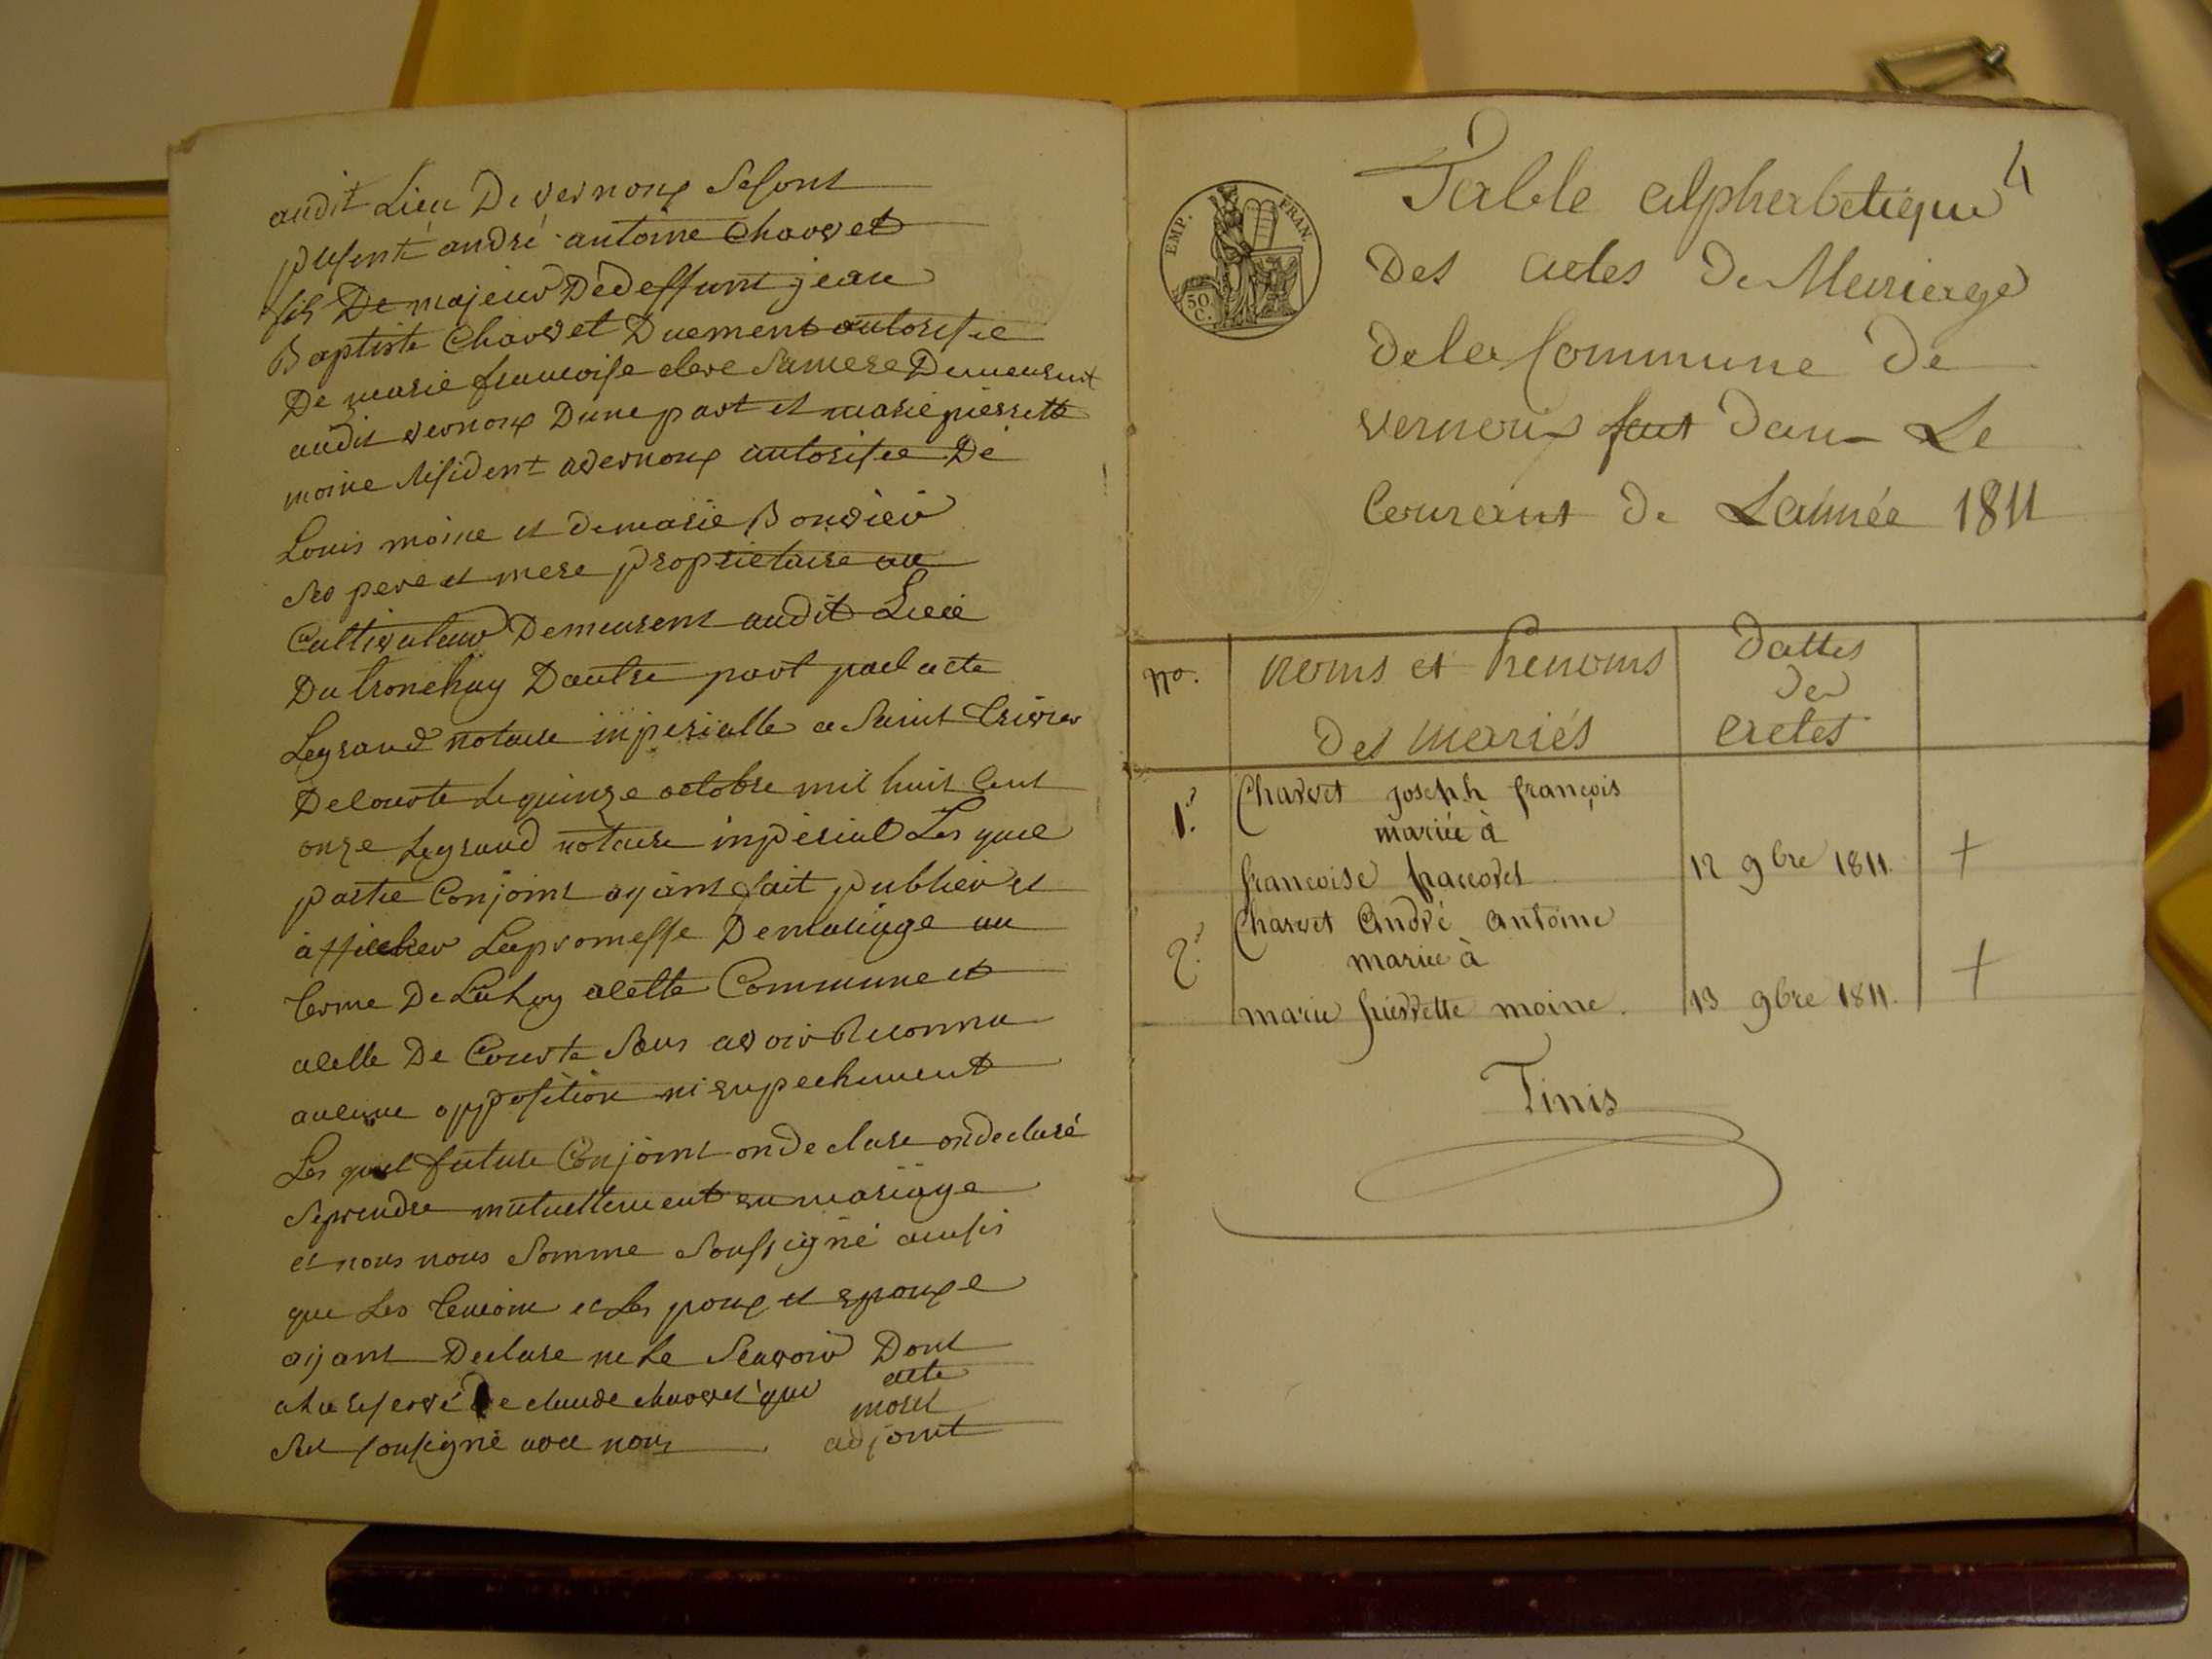 audit Lieu De vernoux Sesont
present andré antoine Charvet
fils De majeur De deffunt jean
Baptiste Charvet Duement autorisée
De marie francoise clere Samere Demeurant
audit vernoux Dune part et marie pierrette
moine Résident avernoux autorisee De
Louis moine et de marie Bouvier
ses pere et mere propriétaire au
Cultivateur Demeurent audit Lieu
Du tronchay Dautre part par acte
Legrand notaire imperialle a Saint trivier
De Courte le quinze octobre mil huit Cent
onze Legrand notaire impérial Les quel
partie Conjoint ayant fait publier et
afficher La promesse De mariage au
terme De La loy a cette Commune et
a celle De Courte Sans avoir Reconnu
aucune opposition ni enpechement
Les quel future Conjoint on De clare on declaré
Seprendre mutuellement en mariage
et nous nous Somme Soussigné ainsis
que Les temoin et Les poux et epouxe
ayant Declare ne Le Scavoir Dont
a La reservé De claude charvet qui acte
morel
set sousigné avec nous adjoint
4
EMP. FRAN.
50 C.
Table alphabetique
Des actes De Mariage
de la Commune De
vernoux fait Dans Le
Courant De Lannée 1811
no. noms et Prenoms Dattes
des
Des mariés actes
1. Charvet joseph françois
mariée à
francoise 12 9bre 1811. +
2. Charvet André antoine
mariée à
marie pierrette moine. 13 9bre 1811. +
Finis